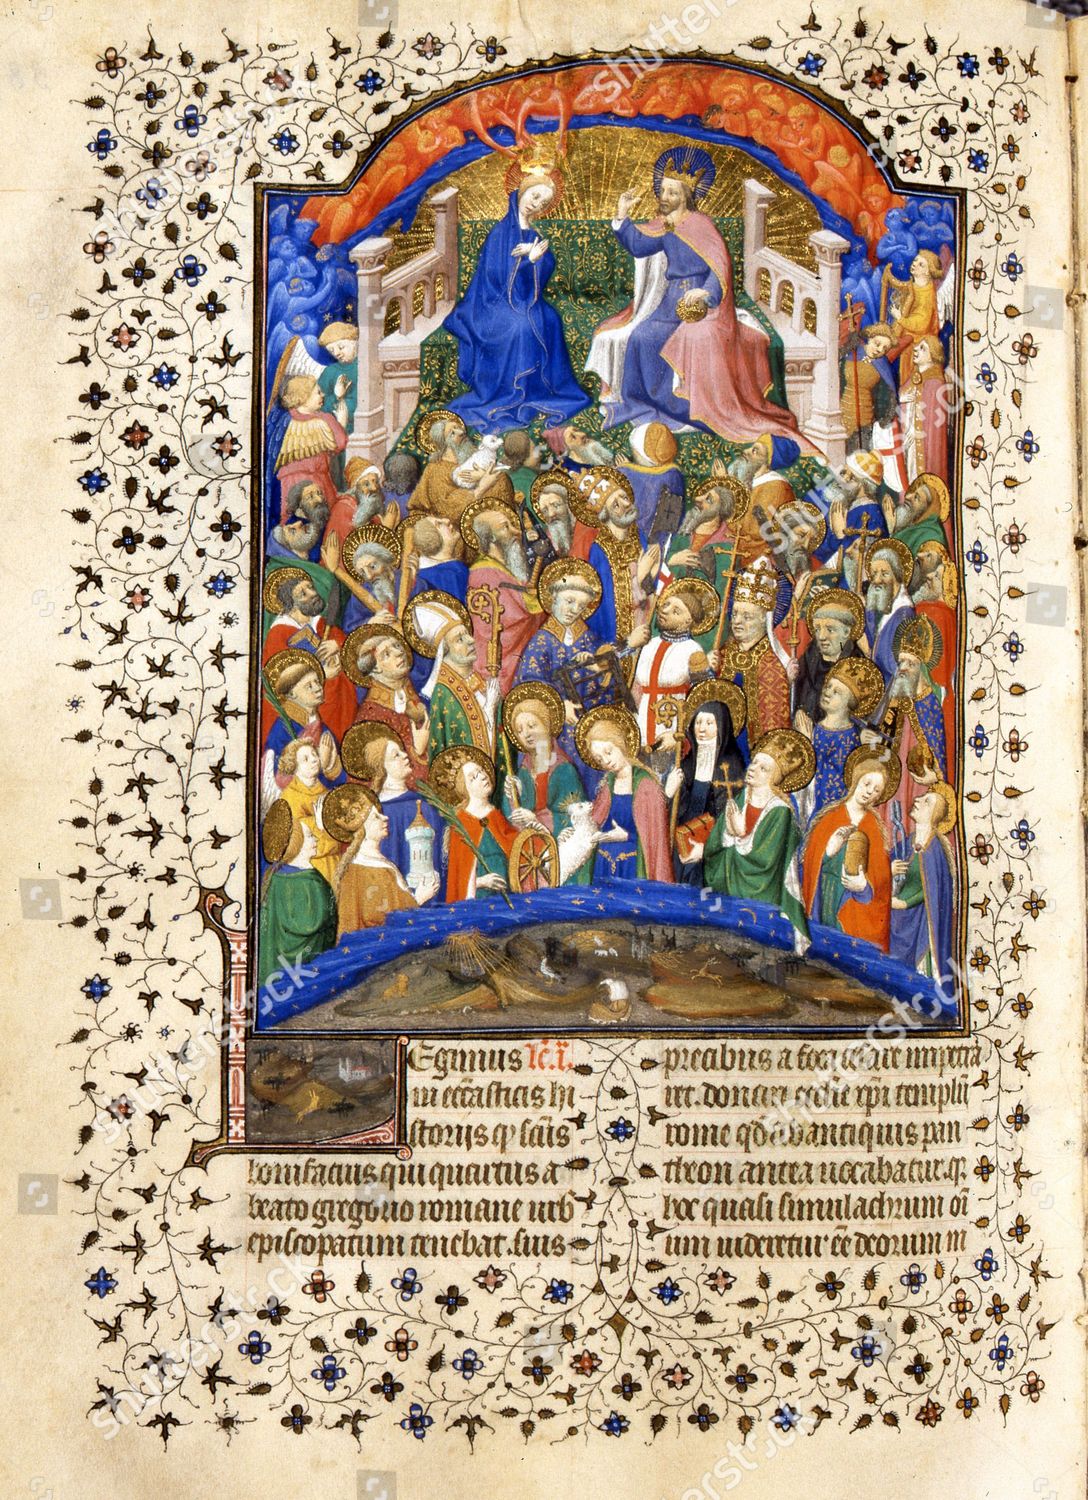 Legimus lc̄. i.
in eccƚasticis hi
storiis qͥ sc̄us
bonifacius qui quartus a
beato gregorio romane urƀ
episcopatum tenebat. suis
precibus a foca cesare impetra
ret. donari ecch̄e xp̄i templū
rome qd̄ ab antiquis pan
theon antea uocabatur. qͥ
hoc quasi simulachrum om̄
um uideretur ee̅ deorum in
shutterstock